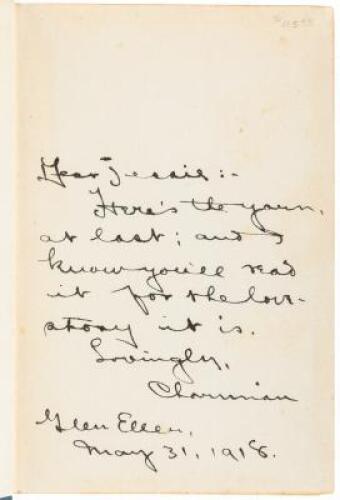 Dear Jessie:-
Here's the yarn,
at last; and I
know you'll read
it for the love-
story it is.
Lovingly,
Charmian
Glen Ellen,
May 31, 1918.